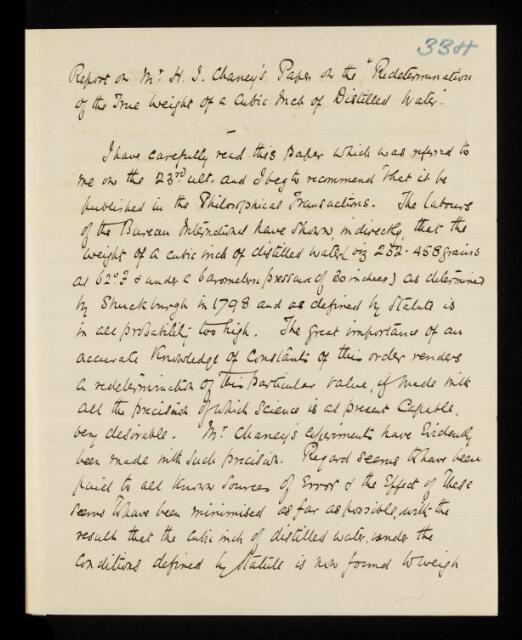 334
Report on Mr. H. J. Chaney's Paper on the "Redetermination
of the True Weight of a Cubic Inch of Distilled Water".
I have carefully read this paper which was referred to
me on the 23rd ult. and I beg to recommend that it be
published in the Philosophical Transactions. The labours
of the Bureau International have shown, indirectly, that the
weight of a cubic inch of distilled water (viz 252.458 grains
at 62° F & under a barometric pressure of 30 inches) as determined
by Shuckburgh in 1798 and as defined by Statute is
in all probability too high. The great importance of an
accurate knowledge of constants of this order renders
a redetermination of this particular value, if made with
all the precision of which Science is at present capable,
very desirable. Mr. Chaney's experiments have evidently
been made with such precision. Regard seems to have been
paid to all known sources of error & the effect of these
seems to have been minimised as far as possible, with the
result that the cubic inch of distilled water, under the
conditions defined by Statute is now found to weigh